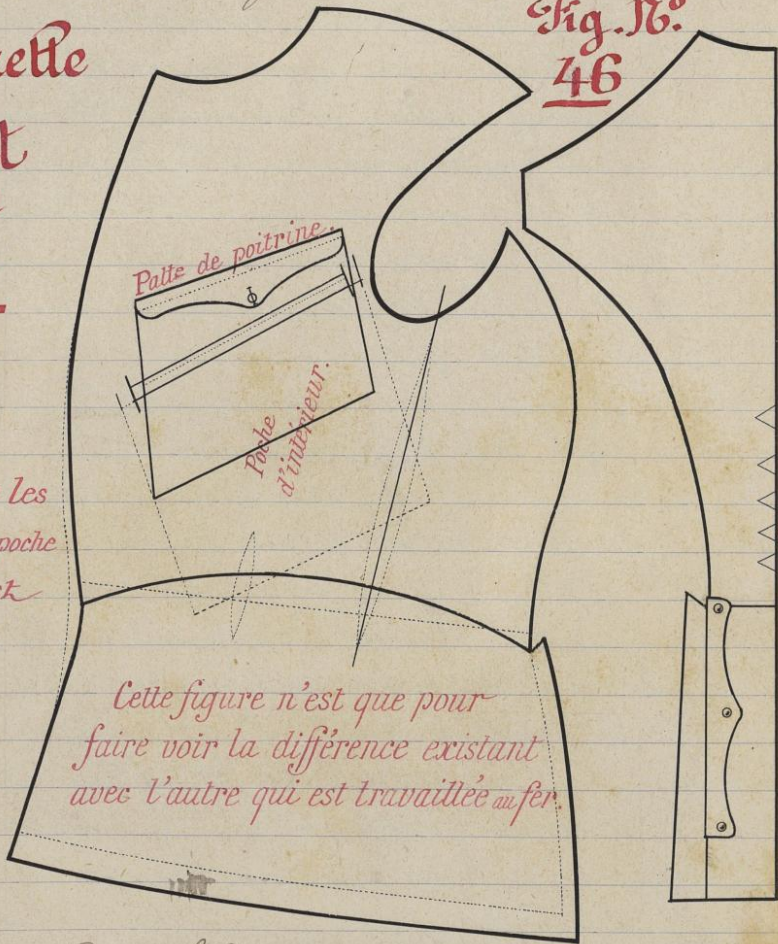 Fig. N.º
46
Patte de poitrine.
Poche
d'intérieur.
les
poche
Cette figure n'est que pour
faire voir la différence existant
avec l'autre qui est travaillée au fer.